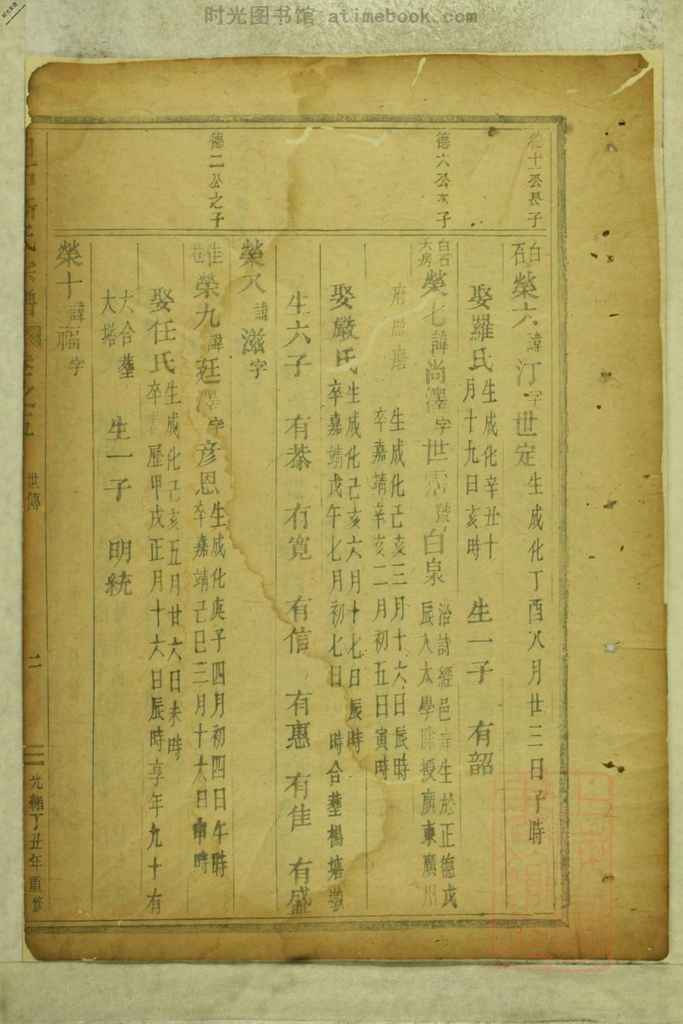 时光图书馆 atimebook.com
十公長子
白石 榮六 諱 汀 字 世定 生成化丁酉八月廿三日子時
娶羅氏 生成化辛丑十月十九日亥時 生一子 有韶
德六公次子
白石大房 榮七 諱 尚澤 字 世霑 號 白泉 治詩經邑庠生於正德戊辰入太學 授廣東廣州
府 生成化己亥三月十六日辰時卒嘉靖辛亥二月初五日寅時
娶嚴氏 生成化己亥六月十七日辰時卒嘉靖戊午七月初七日 時合塟楊塘墩
生六子 有恭 有寬 有信 有惠 有佳 有盛
榮八 諱 滋 字
德二公之子
榮九 諱 廷澤 字 彦恩 生成化庚子四月初四日午時卒嘉靖己巳三月十六日申時
娶任氏 生成化己亥五月廿六日未時卒 歷甲戌正月十六日辰時享年九十有
六合塟大塔 生一子 明統
榮十 諱 福 字
氏宗譜 卷之五 世傳 二 光緒丁丑年重修